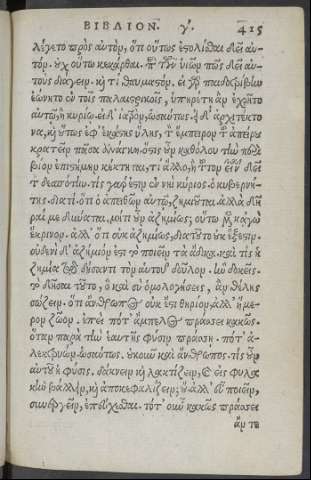 ΒΙΒΛΙΟΝ. γ. 415
λέγετο πρὸς αὐτὸν, ὅτι οὕτως ἐστολίσθαι δεῖ αὐ-
τόν. οὐχ οὕτω κεκάρθαι. ἐπεὶ τῶν υἱῶν πῶς δεῖ αὐ-
τοὺς διάγειν. καὶ τί θαυμαστόν. εἰ γὰρ παιδοτρίβην
ἐώνητο ἐν τοῖς παλαιστρικοῖς, ὑπηρέτῃ ἂν ἐχρῆτο
αὐτῷ, ἢ κυρίῳ· εἰ δ' ἰατρὸν, ὡσαύτως. ἢ δ' ἀρχιτέκτο
να, καὶ οὕτως ἐφ' ἑκάστης ὕλης, τὸν ἔμπειρον τοῦ ἀπείρου
κρατεῖν πᾶσα ἀνάγκη. ὅστις ἂν καθόλου τὴν περὶ
βίον ἐπιστήμην κέκτηται, τί ἄλλο, ἢ τοῦτον εἶναι δεῖ
τὸν δεσπότην. τίς γάρ ἐστιν ἐν νηὶ κύριος; ὁ κυβερνή-
της. διατί· ὅτι ὁ ἀπειθῶν αὐτῷ, ζημιοῦται. ἀλλὰ δεῖ
ραί με δύναται. μή τι οὖν ἀζημίως; οὕτω μὲν κἀγὼ
ἔκρινον. ἀλλ' ὅτι οὐκ ἀζημίως, διατοῦτο οὐκ ἔξεστιν.
οὐδενὶ δ' ἀζήμιόν ἐστι τὸ ποιεῖν τὰ ἄδικα. καὶ τίς ἡ
ζημία τῷ δήσαντι τὸν αὑτοῦ δοῦλον. ἣν δοκεῖς.
τὸ δῆσαι τοῦτο, ὃ καὶ σὺ ὁμολογήσεις, ἂν θέλῃς
σώζειν. ὅτι ἄνθρωπος οὐκ ἔστι θηρίον, ἀλλ' ἥμε-
ρον ζῶον. ἐπεὶ πότ' ἄμπελος πράσσει κακῶς.
ὅταν παρὰ τὴν ἑαυτῆς φύσιν πράσσῃ. πότ' ἀ-
λεκτρυὼν, ὡσαύτως. οὐκοῦν καὶ ἄνθρωπος. τίς οὖν
αὐτοῦ ἡ φύσις. δάκνειν καὶ λακτίζειν, καὶ εἰς φυλα
κὴν βάλλειν, καὶ ἀποκεφαλίζειν; οὔ ἀλλ' εὖ ποιεῖν,
συνεργεῖν, ἐπεύχεσθαι. τότ' οὖν κακῶς πράσσει
ἄν τε